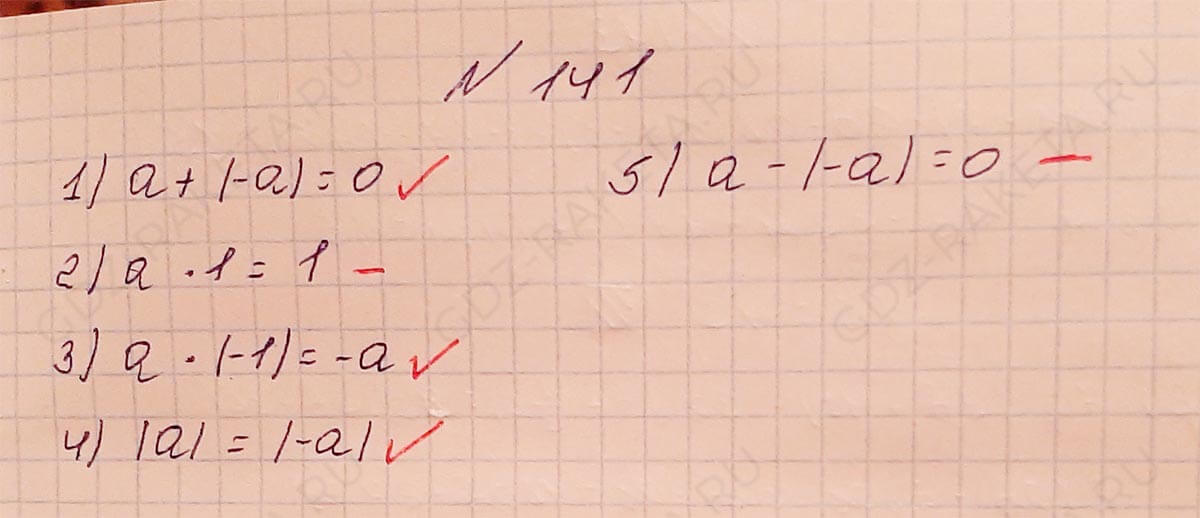 N 141
1) a + (-a) = 0 ✓
2) a · 1 = 1 –
3) a · (-1) = -a ✓
4) |a| = |-a| ✓
5) a - (-a) = 0 –
GDZ-RAKETA.RU